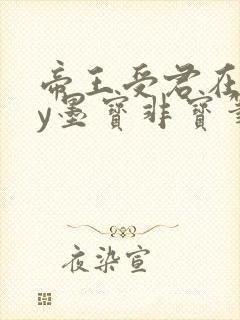 帝王受君在
y墨寶非寶
夜染宣